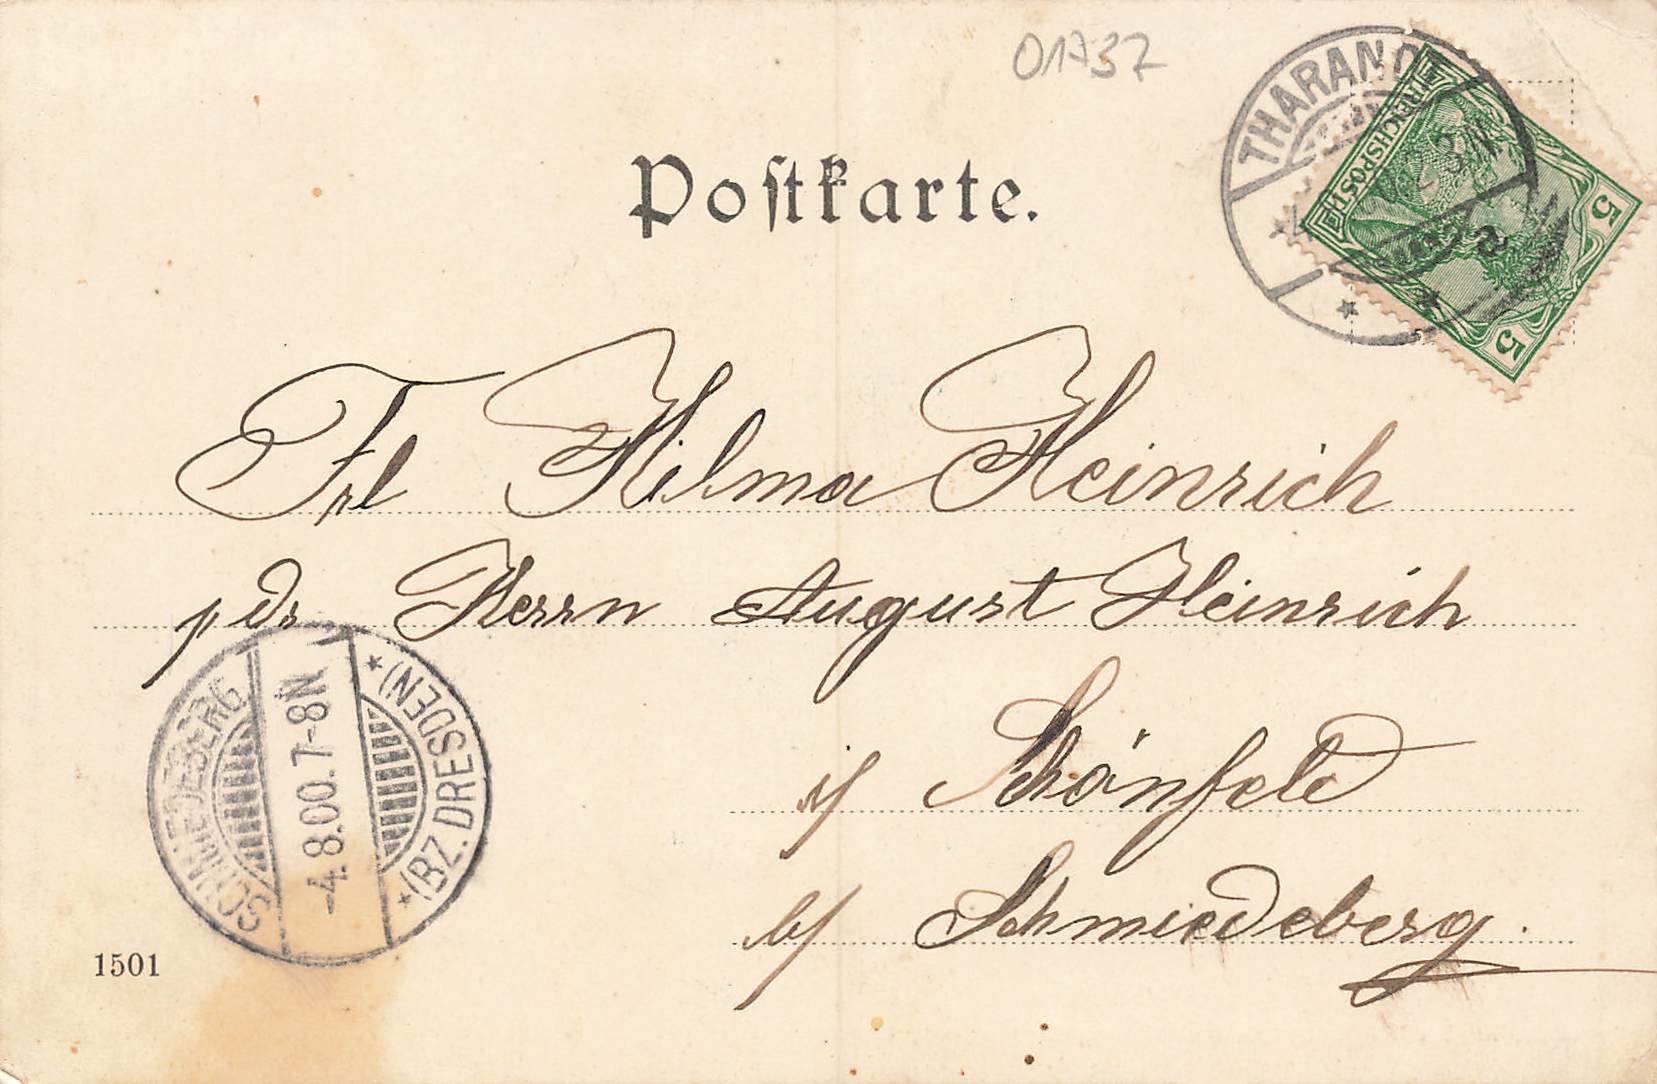 01737
Postkarte.
THARANDT
REICHSPOST
5
5
Frl Hilma Heinrich
p. Adr Herrn August Heinrich
i/ Schönfeld
b/ Schmiedeberg.
SCHMIEDEBERG
-4.8.00.7-8N
*(BZ.DRESDEN)*
1501